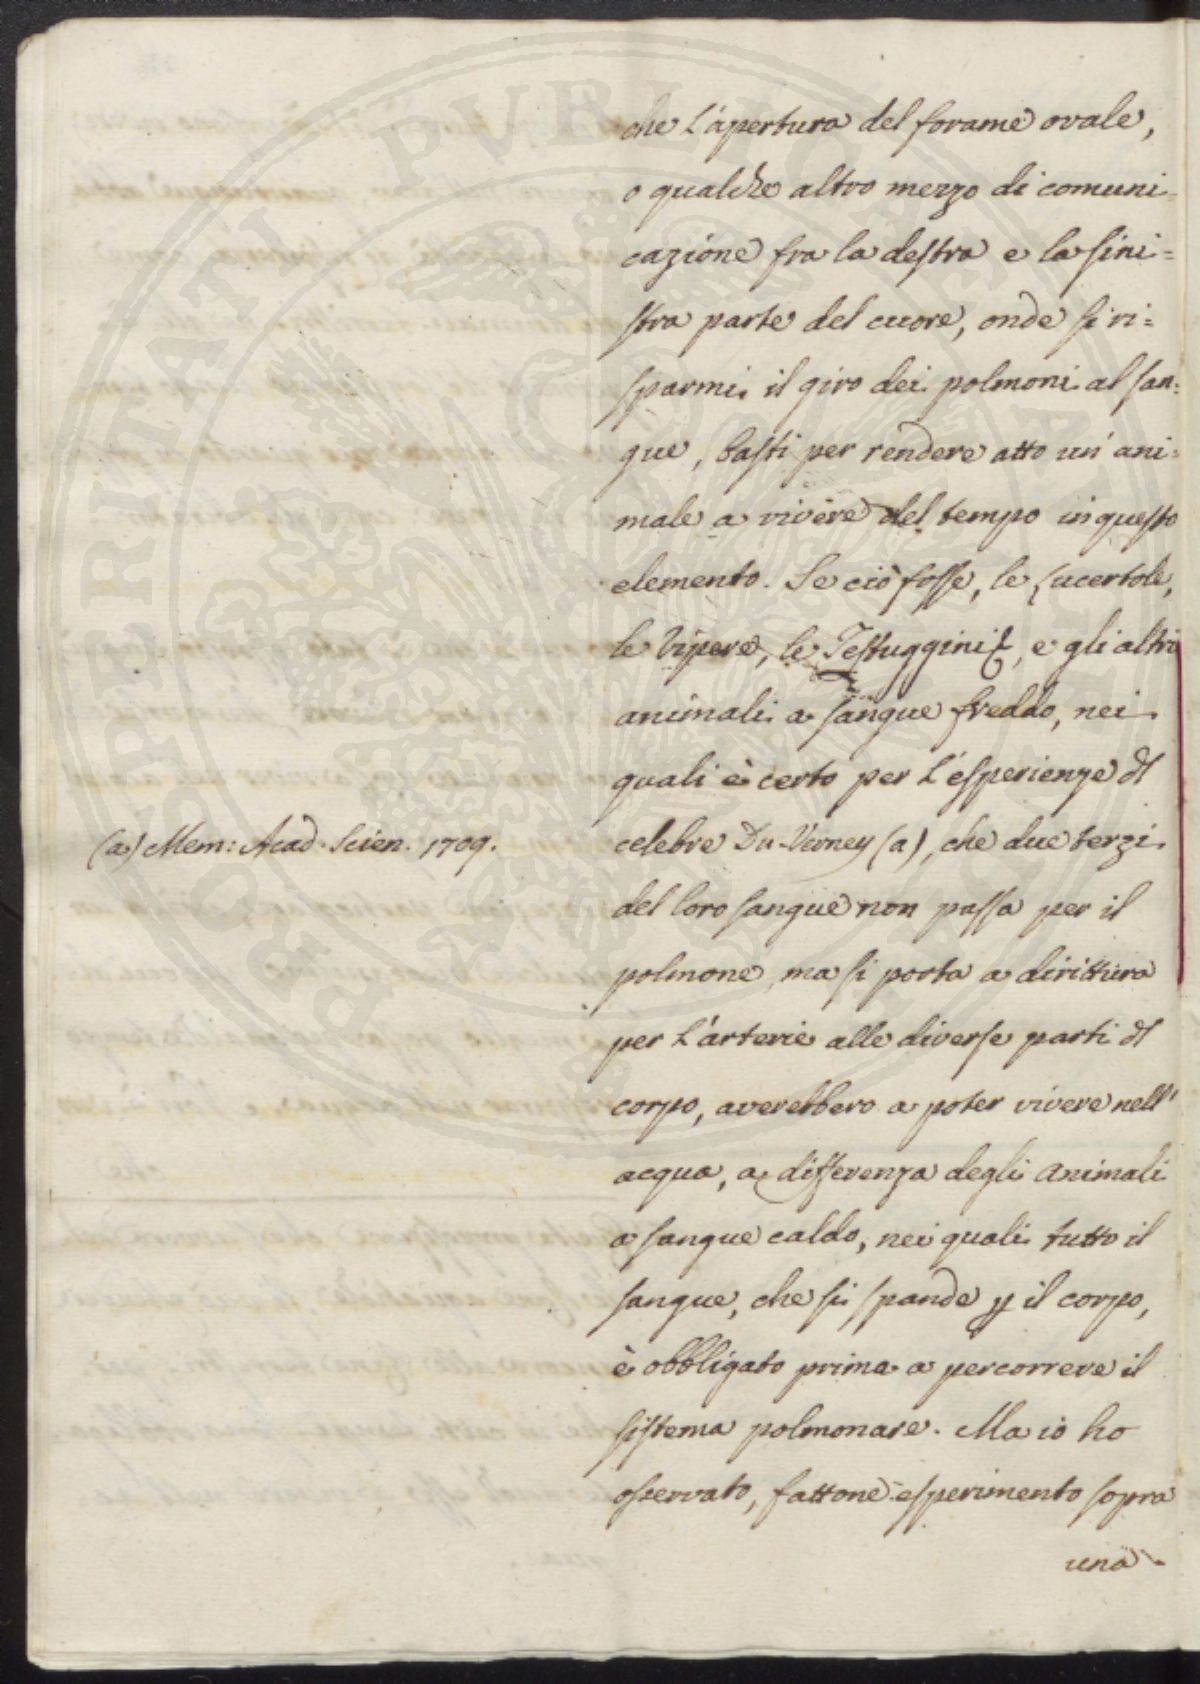 che l'apertura del forame ovale,
o qualche altro mezzo di comuni=
cazione fra la destra e la sini=
stra parte del cuore, onde si ri=
sparmi il giro dei polmoni al san=
gue, basti per rendere atto un' ani=
male a vivere del tempo in questo
elemento. Se ciò fosse, le Lucertole,
le Vipere, le Testuggini, e gli altri
animali a sangue freddo, nei
quali è certo per l'esperienze dl
(a) Mem: Acad. Scien. 1709.
celebre Du-Verney (a), che due terzi
del loro sangue non passa per il
polmone, ma si porta a dirittura
per l'arterie alle diverse parti dl
corpo, averebbero a poter vivere nell'
acqua, a differenza degli Animali
a sangue caldo, nei quali tutto il
sangue, che si spande p il corpo,
è obbligato prima a percorrere il
sistema polmonare. Ma io ho
osservato, fattone esperimento sopra
una
PROSPERITATI PUBLICAE